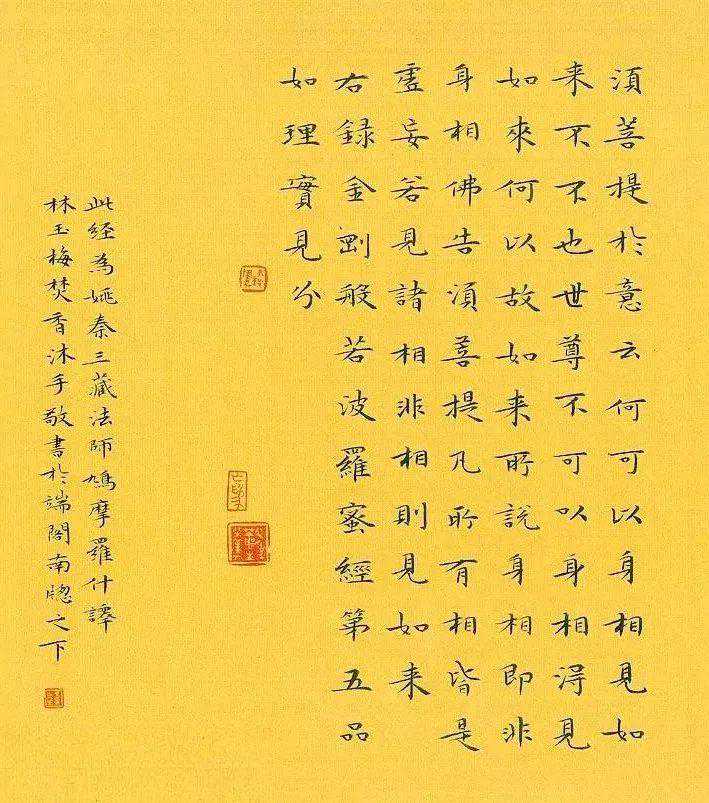 須菩提於意云何可以身相見如
来不不也世尊不可以身相淂見
如來何以故如来所説身相即非
身相佛告須菩提凡所有相皆是
虛妄若見諸相非相則見如来
右録金剛般若波羅蜜經第五品
如理實見分
此経為姚秦三藏法師鳩摩羅什譯
林玉梅焚香沐手敬書於端閣南牕之下